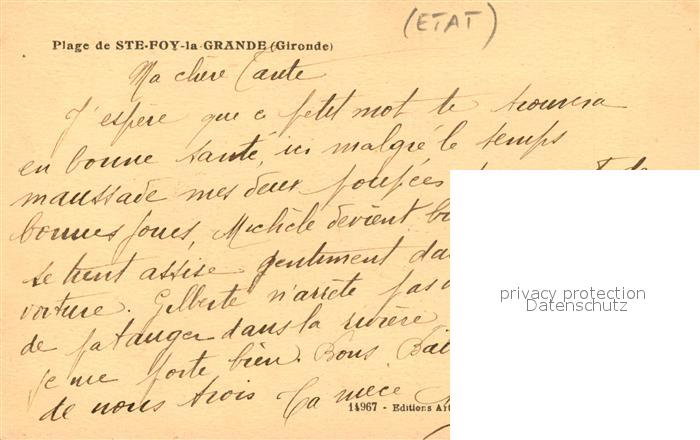 (ETAT)
Plage de STE-FOY-la-GRANDE (Gironde)
Ma chère Tante
J'espère que ce petit mot te trouvera
en bonne santé, ici malgré le temps
maussade mes deux poupées
bonnes joues, Michèle devient
se tient assise gentiment
voiture. Gilberte n'arrête pas
de patauger dans la rivière
je me porte bien. Bons
de nous trois Ta nièce
14967 - Editions
privacy protection
Datenschutz